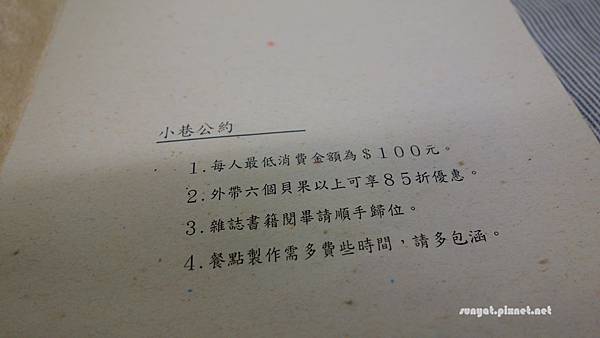 小巷公約
1.每人最低消費金額為＄100元。
2.外帶六個貝果以上可享85折優惠。
3.雜誌書籍閱畢請順手歸位。
4.餐點製作需多費些時間，請多包涵。
sunyat.pixnet.net